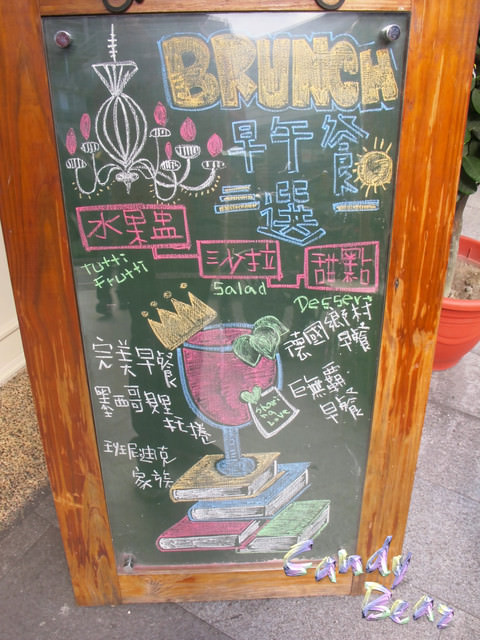 BRUNCH
早午餐
選
水果盅
沙拉
甜點
Tutti
Frutti
Salad
Dessert
完美早餐
德國鄉村
早餐
墨西哥捲
巨無霸
早餐
班尼迪克
家族
LOVE
Candy
Bear